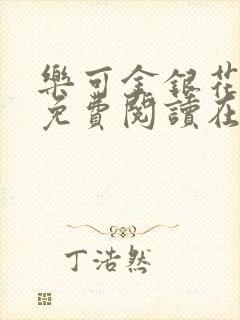 樂可金銀花
免費閱讀在
丁浩然